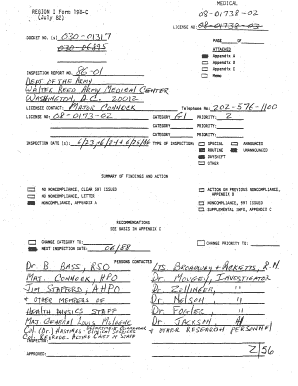 MEDICAL
REGION I Form 198-C
(July 82)
08-01738-02
LICENSE NO. 08-01738-03
DOCKET NO.(s) 030-01317
030-06895
PAGE OF
ATTACHED
Appendix A
Appendix B
Appendix C
Memo
INSPECTION REPORT NO. 86-01
DEPT OF THE ARMY
WALTER REED ARMY MEDICAL CENTER
WASHINGTON, D.C. 20012
LICENSEE CONTACT: MAJOR CONNOCK Telephone No. 202-576-1100
LICENSE NO. 08-01738-02 CATEGORY G1 PRIORITY: 2
CATEGORY PRIORITY:
INSPECTION DATE(s) TYPE OF INSPECTION: SPECIAL ANNOUNCED
ROUTINE UNANNOUNCED
DAYSHIFT
OTHER
SUMMARY OF FINDINGS AND ACTION
NO NONCOMPLIANCE, CLEAR 591 ISSUED
NO NONCOMPLIANCE, LETTER
NONCOMPLIANCE, APPENDIX A
ACTION ON PREVIOUS NONCOMPLIANCE, APPENDIX B
NONCOMPLIANCE, 591 ISSUED
SUPPLEMENTAL INFO, APPENDIX C
RECOMMENDATIONS
SEE BASIS IN APPENDIX C
CHANGE CATEGORY TO: CHANGE PRIORITY TO:
NEXT INSPECTION DATE: 06/88
PERSONS CONTACTED
DR B BASS, RSO
MAJ. CONNOCK, HPO
JIM STAFFORD, AHPO
& OTHER MEMBERS OF
HEALTH PHYSICS STAFF
MAJ. GENERAL LOUIS
COL. (DR.) HASTINGS
LTS. BROADWAY & RICKETTS, R.N.
DR. , INVESTIGATOR
DR. ZOLLINGER, "
DR. NELSON "
DR. FOWLER, "
DR. JACKSON "
& OTHER RESEARCH PERSONNEL
INSPECTOR
APPROVED: 2/56